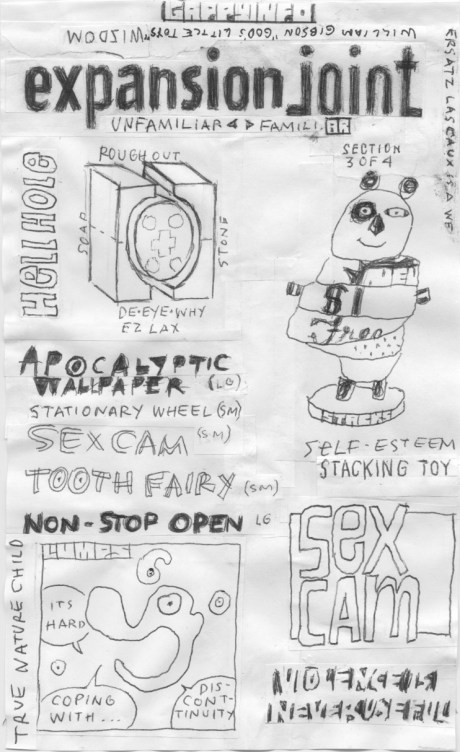 GAPPYINFO
WILLIAM GIBSON "GOD'S LITTLE TOYS"
WIZDOM
expansion joint
UNFAMILIAR ◄ ► FAMILI. AR
ERSATZ LASCAUX IS A WE
HELLHOLE
ROUGH OUT
SOAP
STONE
DE·EYE·WHY
EZ LAX
SECTION
3 OF 4
$1
SELF-ESTEEM
STACKING TOY
APOCALYPTIC
WALLPAPER (LG)
STATIONARY WHEEL (SM)
SEX CAM (SM)
TOOTH FAIRY (SM)
NON-STOP OPEN LG
TRUE NATURE CHILD
ITS
HARD
COPING
WITH...
DIS-
CONT-
TINUITY
sex
cam